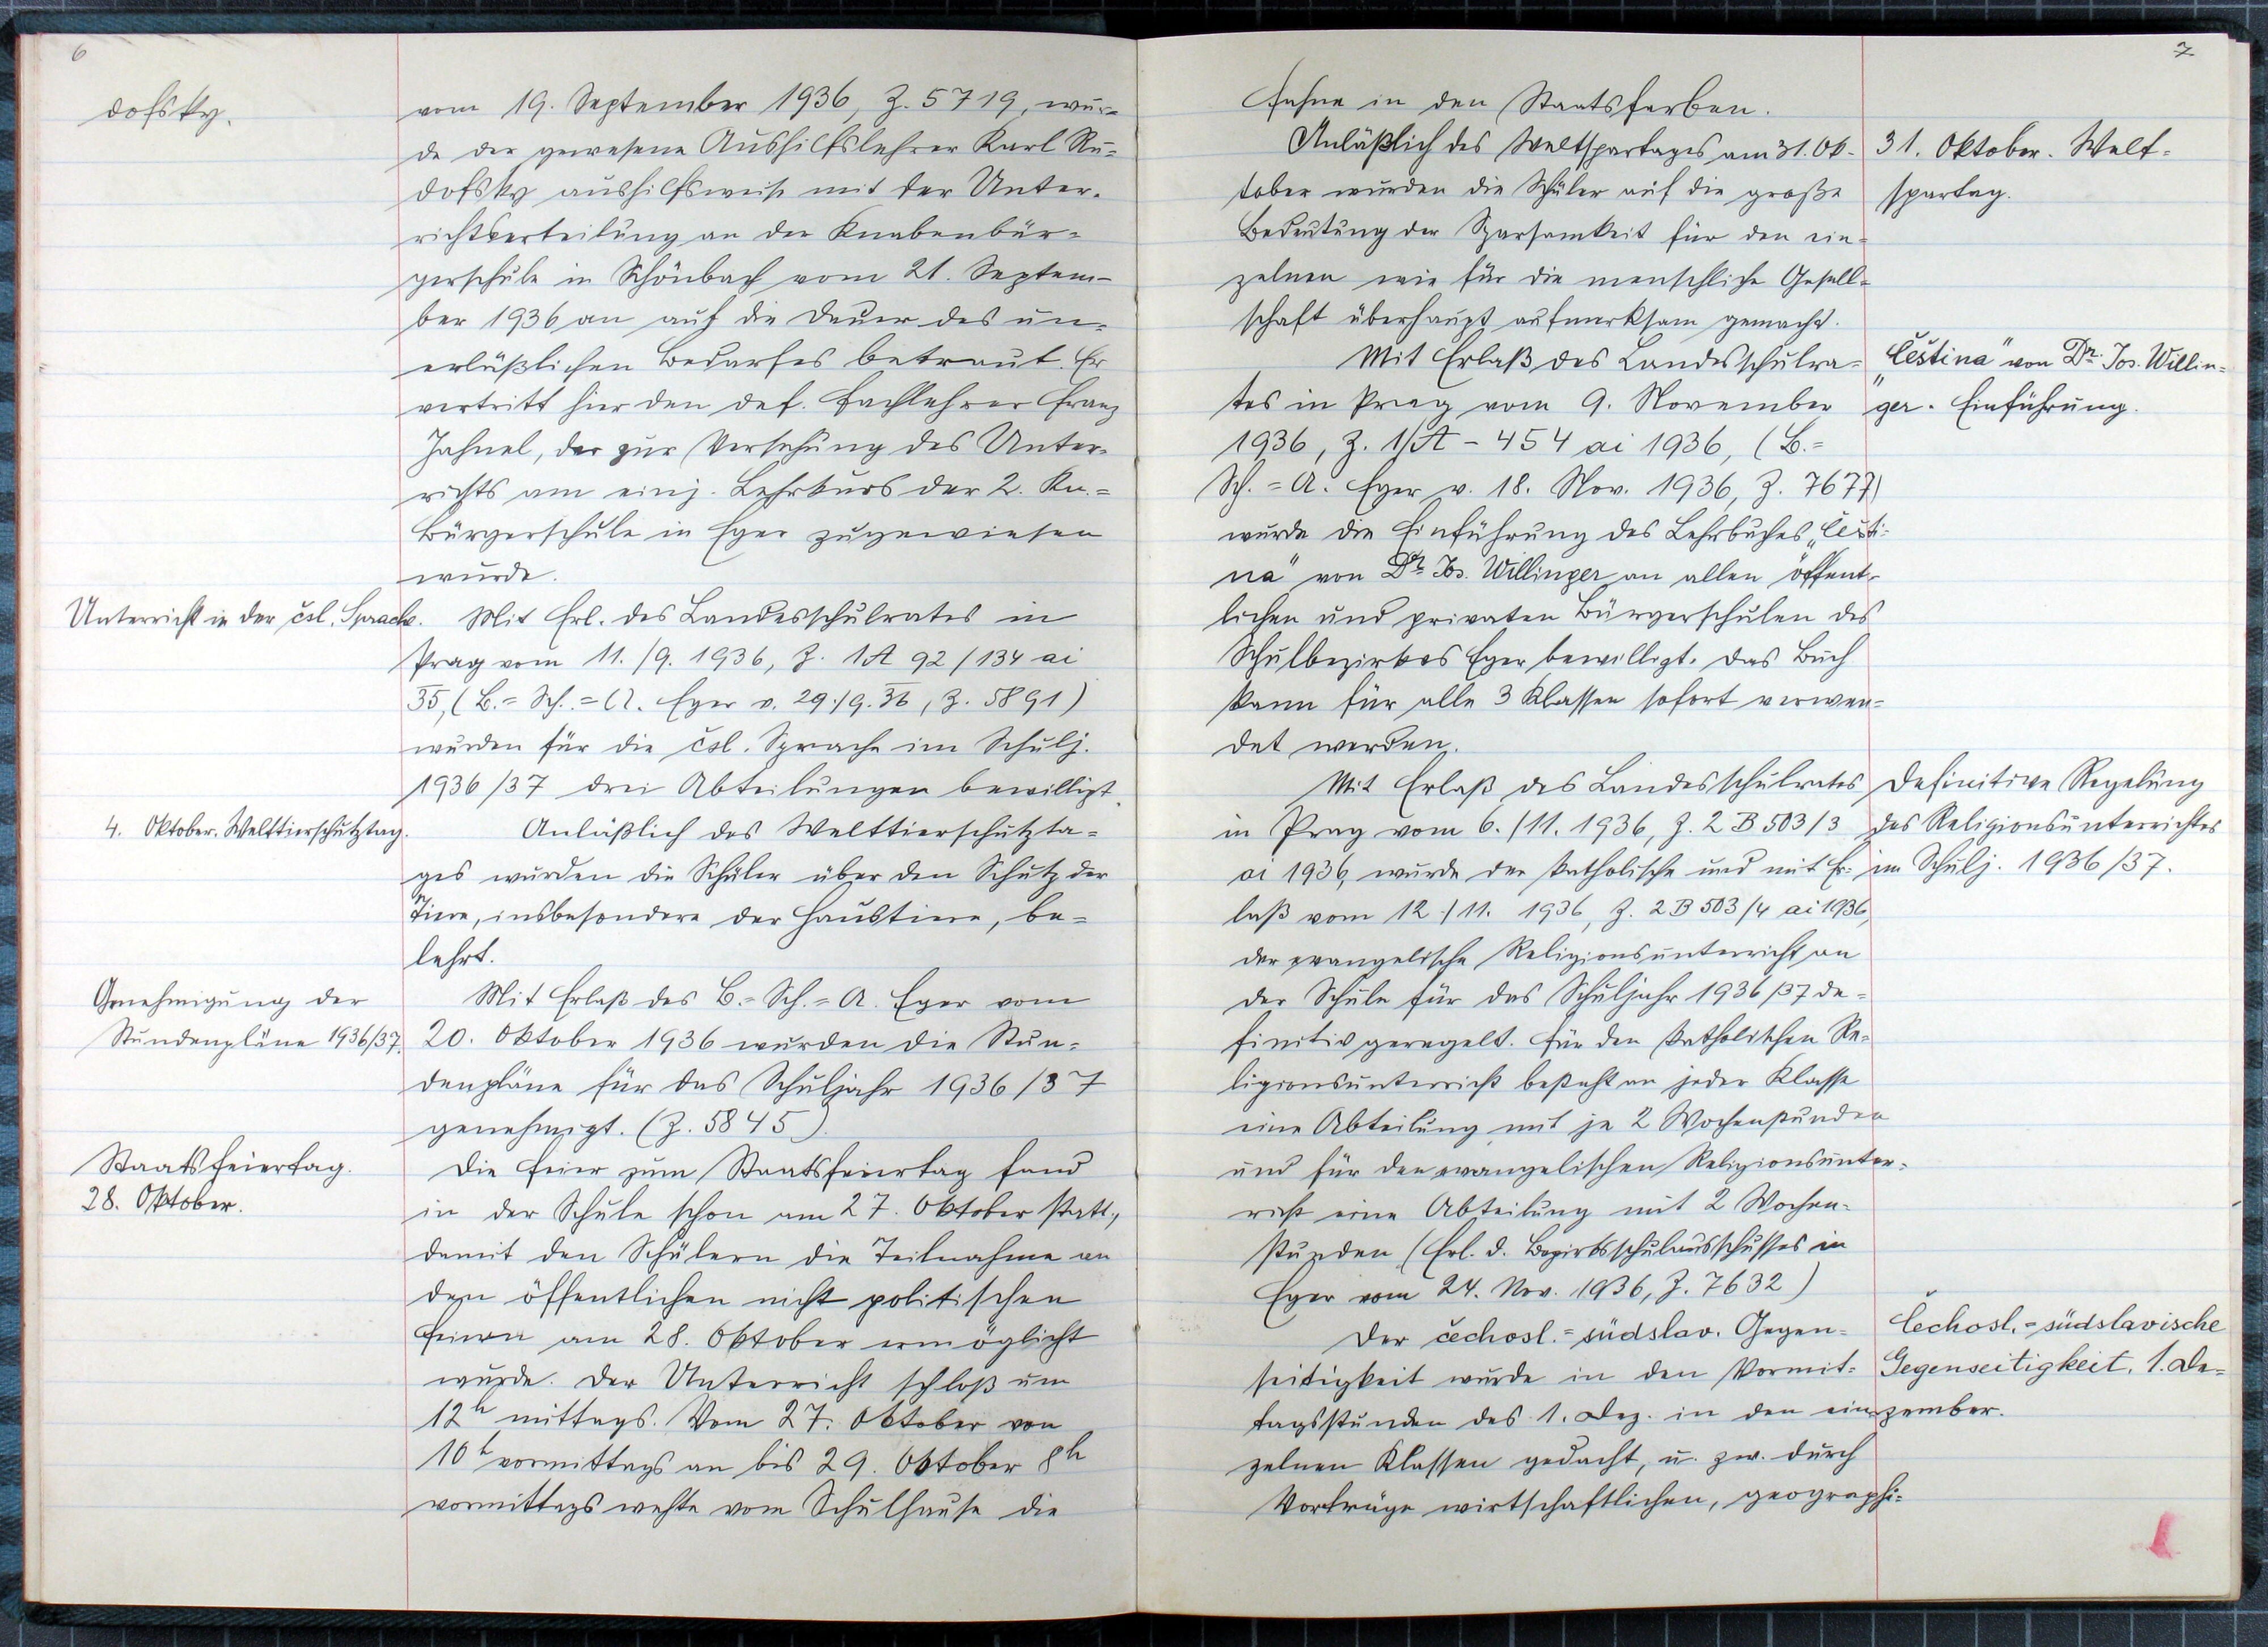 6
dofsky.
vom 19. September 1936, Z. 5719, wur-
de der gewesene Aushilfslehrer Karl Ru-
dofsky aushilfsweise mit der Unter-
richtserteilung an der Knabenbür-
gerschule in Schönbach vom 21. Septem-
ber 1936 an auf die Dauer des un-
erläßlichen Bedarfes betraut. Er
vertritt hier den def. Fachlehrer Franz
Jahnel, der zur Versehung des Unter-
richts am einj. Lehrkurs der 2. Kn.=
Bürgerschule in Eger zugewiesen
wurde.
Unterricht in der čsl. Sprache.
Mit Erl. des Landesschulrates in
Prag vom 11./9. 1936, Z. 1A 92/134 ai
35, (B.=Sch.=A. Eger v. 29./9. 36, Z. 5891)
wurden für die čsl. Sprache im Schulj.
1936/37 drei Abteilungen bewilligt.
4. Oktober. Welttierschutztag.
Anläßlich des Welttierschutzta=
ges wurden die Schüler über den Schutz der
Tiere, insbesondere der Haustiere, be=
lehrt.
Genehmigung der
Stundenpläne 1936/37.
Mit Erlaß des B.=Sch.=A. Eger vom
20. Oktober 1936 wurden die Stun=
denpläne für das Schuljahr 1936/37
genehmigt. (Z. 5845).
Staatsfeiertag.
28. Oktober.
Die Feier zum Staatsfeiertag fand
in der Schule schon am 27. Oktober statt,
damit den Schülern die Teilnahme an
den öffentlichen nicht politischen
Feiern am 28. Oktober ermöglicht
wurde. Der Unterricht schloß um
12h mittags. Vom 27. Oktober von
10h vormittags an bis 29. Oktober 8h
vormittags wehte vom Schulhause die
7
Fahne in den Staatsfarben.
Anläßlich des Weltspartages am 31. Ok-
tober wurden die Schüler auf die große
Bedeutung der Sparsamkeit für den ein=
zelnen wie für die menschliche Gesell=
schaft überhaupt aufmerksam gemacht.
31. Oktober. Welt=
spartag.
Mit Erlaß des Landesschulra=
tes in Prag vom 9. November
1936, Z. 1/A - 454 ai 1936, (B.=
Sch.=A. Eger v. 18. Nov. 1936, Z. 7677)
wurde die Einführung des Lehrbuches „Češti=
na" von Dr. Jos. Willinger an allen öffent-
lichen und privaten Bürgerschulen des
Schulbezirkes Eger bewilligt. Das Buch
kann für alle 3 Klassen sofort verwen=
det werden.
„Čeština" von Dr. Jos. Willin=
ger. Einführung.
Mit Erlaß des Landesschulrates
in Prag vom 6./11. 1936, Z. 2 B 503/3
ai 1936, wurde der katholische und mit Er=
laß vom 12./11. 1936, Z. 2 B 503/4 ai 1936,
der evangelische Religionsunterricht an
der Schule für das Schuljahr 1936/37 de=
finitiv geregelt. Für den katholischen Re=
ligionsunterricht besteht an jeder Klasse
eine Abteilung mit je 2 Wochenstunden
und für den evangelischen Religionsunter=
richt eine Abteilung mit 2 Wochen=
stunden (Erl. d. Bezirksschulausschusses in
Eger vom 24. Nov. 1936, Z. 7632)
Definitive Regelung
des Religionsunterrichtes
im Schulj. 1936/37.
Der čechosl.=südslav. Gegen=
seitigkeit wurde in den Vormit=
tagsstunden des 1. Dez. in den ein=
zelnen Klassen gedacht, u. zw. durch
Vorträge wirtschaftlichen, geographi=
Čechosl.=südslavische
Gegenseitigkeit. 1. De=
zember.